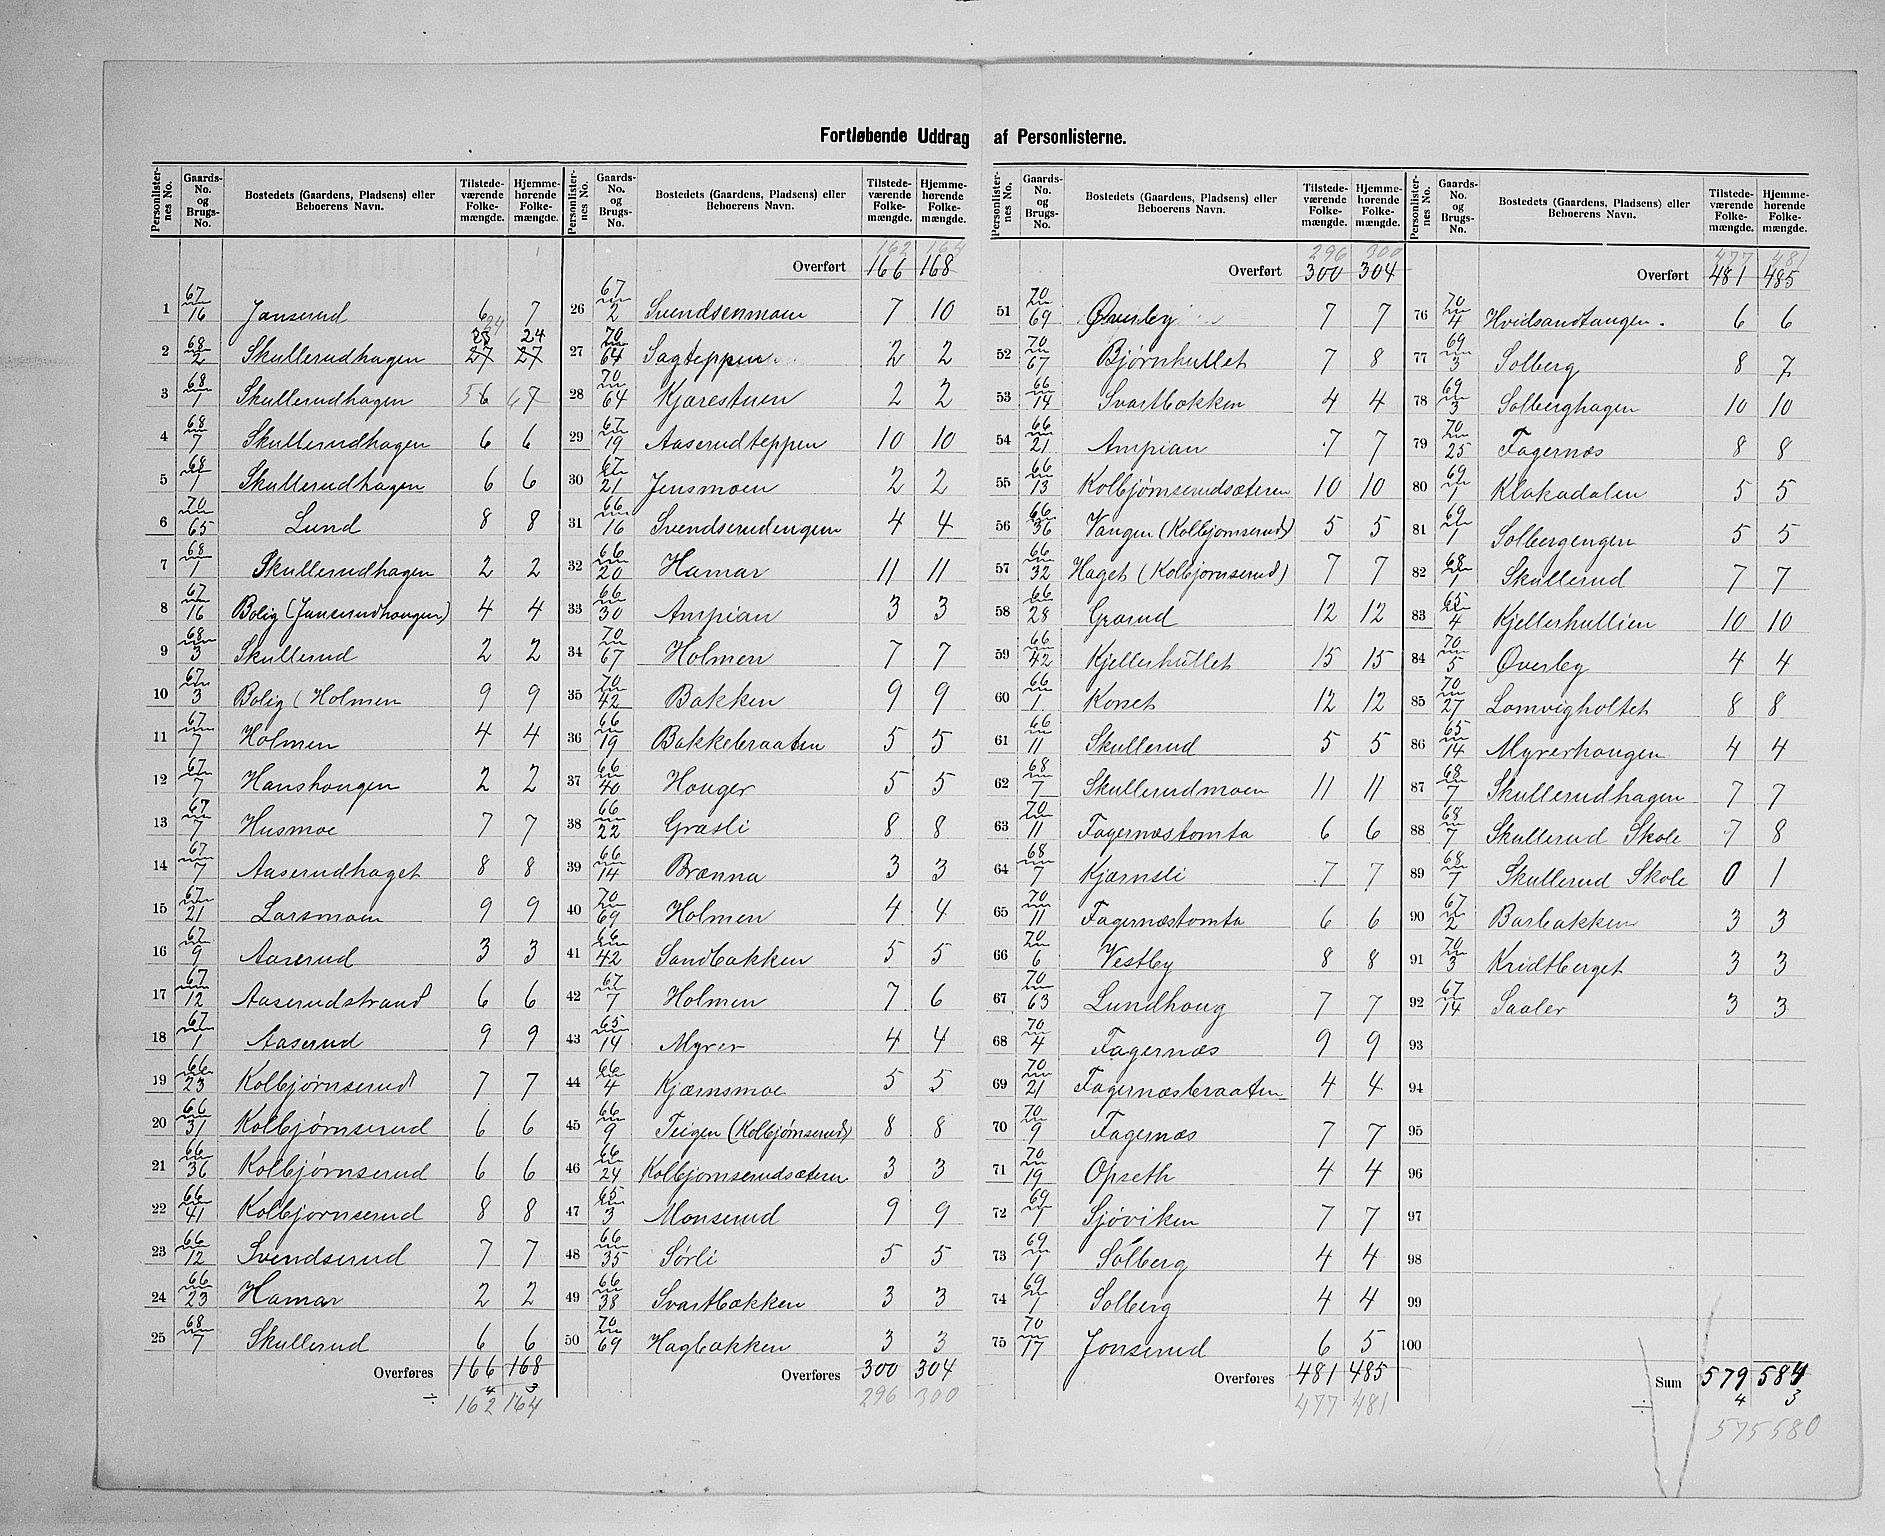 Fortløbende Uddrag af Personlisterne.
Personlisternes No. | Gaards-No. og Brugs-No. | Bostedets (Gaardens, Pladsens) eller Beboerens Navn. | Tilstedeværende Folkemængde. | Hjemmehørende Folkemængde.
1 67/16 Janserud 6 7
2 68/2 Skullerudhagen 27 27 24 24
3 68/1 Skullerudhagen 56 67
4 68/7 Skullerudhagen 6 6
5 68/1 Skullerudhagen 6 6
6 70/65 Lund 8 8
7 68/1 Skullerudhagen 2 2
8 67/16 Bolig (Janserudhaugen) 4 4
9 68/3 Skullerud 2 2
10 67/3 Bolig (Holmen 9 9
11 67/7 Holmen 4 4
12 67/7 Hanshaugen 2 2
13 67/7 Husmoe 7 7
14 67/7 Aaserudhaget 8 8
15 67/21 Larsmoen 9 9
16 67/9 Aaserud 3 3
17 67/12 Aaserudstrand 6 6
18 67/1 Aaserud 9 9
19 66/23 Kolbjørnserud 7 7
20 66/31 Kolbjørnserud 6 6
21 66/36 Kolbjørnserud 6 6
22 66/41 Kolbjornserud 8 8
23 66/12 Svendserud 7 7
24 66/23 Hamar 2 2
25 68/7 Skullerud 6 6
Overføres 166 168
÷ 4 3
162 164
Personlisternes No. | Gaards-No. og Brugs-No. | Bostedets (Gaardens, Pladsens) eller Beboerens Navn. | Tilstedeværende Folkemængde. | Hjemmehørende Folkemængde.
162 164
Overført 166 168
26 67/2 Svendsenmoen 7 10
27 70/64 Sagteppen 2 2
28 70/64 Kjærestuen 2 2
29 67/19 Aaserudteppen 10 10
30 67/21 Jensmoen 2 2
31 66/16 Svendserudengen 4 4
32 66/20 Hamar 11 11
33 66/30 Ampian 3 3
34 70/67 Holmen 7 7
35 70/42 Bakken 9 9
36 66/19 Bakkebraaten 5 5
37 66/40 Hauger 5 5
38 66/22 Grasli 8 8
39 66/14 Brænna 3 3
40 70/69 Holmen 4 4
41 66/42 Sandbakken 5 5
42 67/7 Holmen 7 6
43 65/14 Myrer 4 4
44 66/4 Kjærnsmoe 5 5
45 66/9 Teigen (Kolbjørnserud) 8 8
46 66/24 Kolbjornserudsæteren 3 3
47 65/3 Monserud 9 9
48 66/35 Sørli 5 5
49 66/38 Svartbakken 3 3
50 70/69 Hagbakken 3 3
Overføres 300 304
296 300
Personlisternes No. | Gaards-No. og Brugs-No. | Bostedets (Gaardens, Pladsens) eller Beboerens Navn. | Tilstedeværende Folkemængde. | Hjemmehørende Folkemængde.
296 300
Overført 300 304
51 70/69 Øverby 7 7
52 70/67 Bjørnhullet 7 8
53 66/14 Svartbakken 4 4
54 66/21 Ampian 7 7
55 66/13 Kolbjørnserudsæteren 10 10
56 66/36 Vangen (Kolbjornserud) 5 5
57 66/32 Haget (Kolbjornserud) 7 7
58 66/28 Grorud 12 12
59 66/42 Kjellerhullet 15 15
60 66/1 Korset 12 12
61 66/11 Skullerud 5 5
62 68/7 Skullerudmoen 11 11
63 70/11 Fagernæstomta 6 6
64 68/7 Kjærnsli 7 7
65 70/11 Fagernæstomta 6 6
66 70/6 Vestby 8 8
67 70/63 Lundhaug 7 7
68 70/4 Fagernæs 9 9
69 70/21 Fagernæsbraaten 4 4
70 70/9 Fagernæs 7 7
71 70/19 Opseth 4 4
72 69/1 Sjøviken 7 7
73 69/1 Solberg 4 4
74 69/1 Solberg 4 4
75 70/17 Jonserud 6 5
Overføres 481 485
477 481
Personlisternes No. | Gaards-No. og Brugs-No. | Bostedets (Gaardens, Pladsens) eller Beboerens Navn. | Tilstedeværende Folkemængde. | Hjemmehørende Folkemængde.
477 481
Overført 481 485
76 70/4 Hvidsandtangen. 6 6
77 69/3 Solberg 8 7
78 69/3 Solberghagen 10 10
79 70/25 Fagernæs 8 8
80 69/1 Klokadalen 5 5
81 69/1 Solbergengen 5 5
82 68/1 Skullerud 7 7
83 65/4 Kjellerhullien 10 10
84 70/5 Øverby 4 4
85 70/27 Lomvigholtet 8 8
86 65/14 Myrerhaugen 4 4
87 68/7 Skullerudhagen 7 7
88 68/7 Skullerud Skole 7 8
89 68/7 Skullerud Skole 0 1
90 67/2 Barbakken 3 3
91 70/3 Kridtberget 3 3
92 67/14 Saaler 3 3
93
94
95
96
97
98
99
100
Sum 579 584
÷ 4 3
575 580